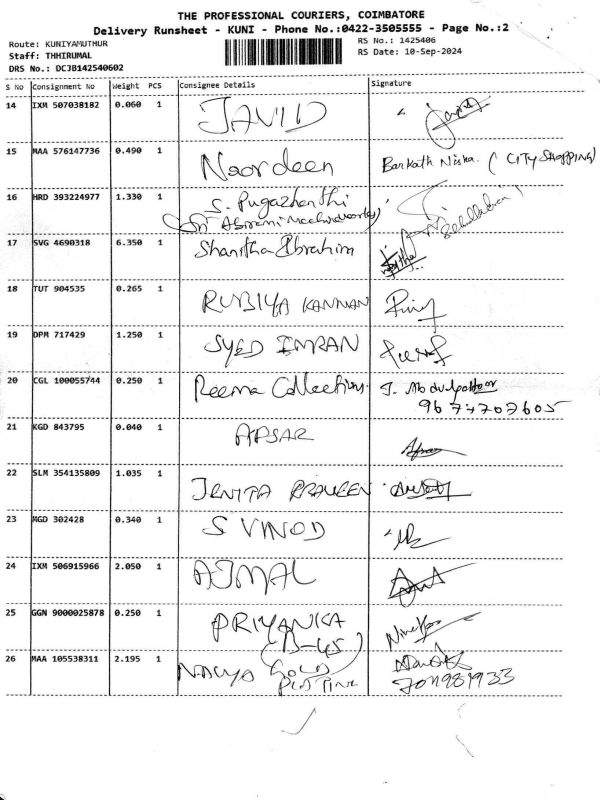 THE PROFESSIONAL COURIERS, COIMBATORE
Delivery Runsheet - KUNI - Phone No.:0422-3505555 - Page No.:2
Route: KUNIYAMUTHUR
RS No.: 1425406
Staff: THHIRUMAL
RS Date: 10-Sep-2024
DRS No.: DCJB142540602
S No Consignment No Weight PCS Consignee Details Signature
14 IXM 507038182 0.060 1 JAVID
15 MAA 576147736 0.490 1 Noordeen Barkath Nisha. (CITY SHOPPING)
16 HRD 393224977 1.330 1 S. Pugazhenthi
(Sri Abirami
17 SVG 4690318 6.350 1 Shanitha Ibrahim
18 TUT 904535 0.265 1 RUBIYA KANNAN
19 DPM 717429 1.250 1 SYED IMRAN
20 CGL 100055744 0.250 1 Reema Collections. J.
21 KGD 843795 0.040 1 APSAR
22 SLM 354135809 1.035 1 JENITA PRAVEEN
23 MGD 302428 0.340 1 S VINOD
24 IXM 506915966 2.050 1 AJMAL
25 GGN 9000025878 0.250 1 PRIYANKA
(B-45)
26 MAA 105538311 2.195 1 GOLD